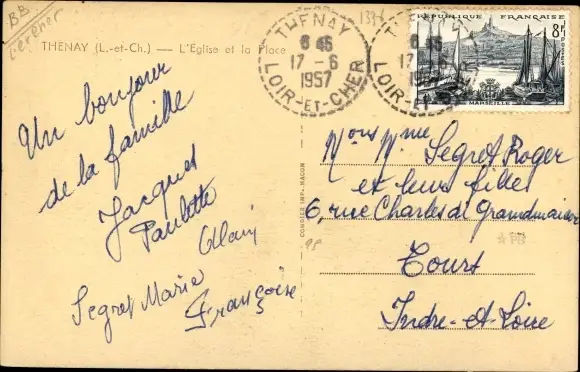 BB
THENAY (L.-et-Ch.) — L'Eglise et la Place
Un bonjour
de la famille
Jacques
Paulette
Alain
Segret Marie
Françoise
THENAY
6 45
17 - 6
1957
LOIR-ET-CHER
RÉPUBLIQUE FRANÇAISE
8F
POSTES
MARSEILLE
COMBIER IMP. MACON
Segret Roger
et leurs filles
6, rue Charles de Grandmaison
Tours
Indre-et-Loire